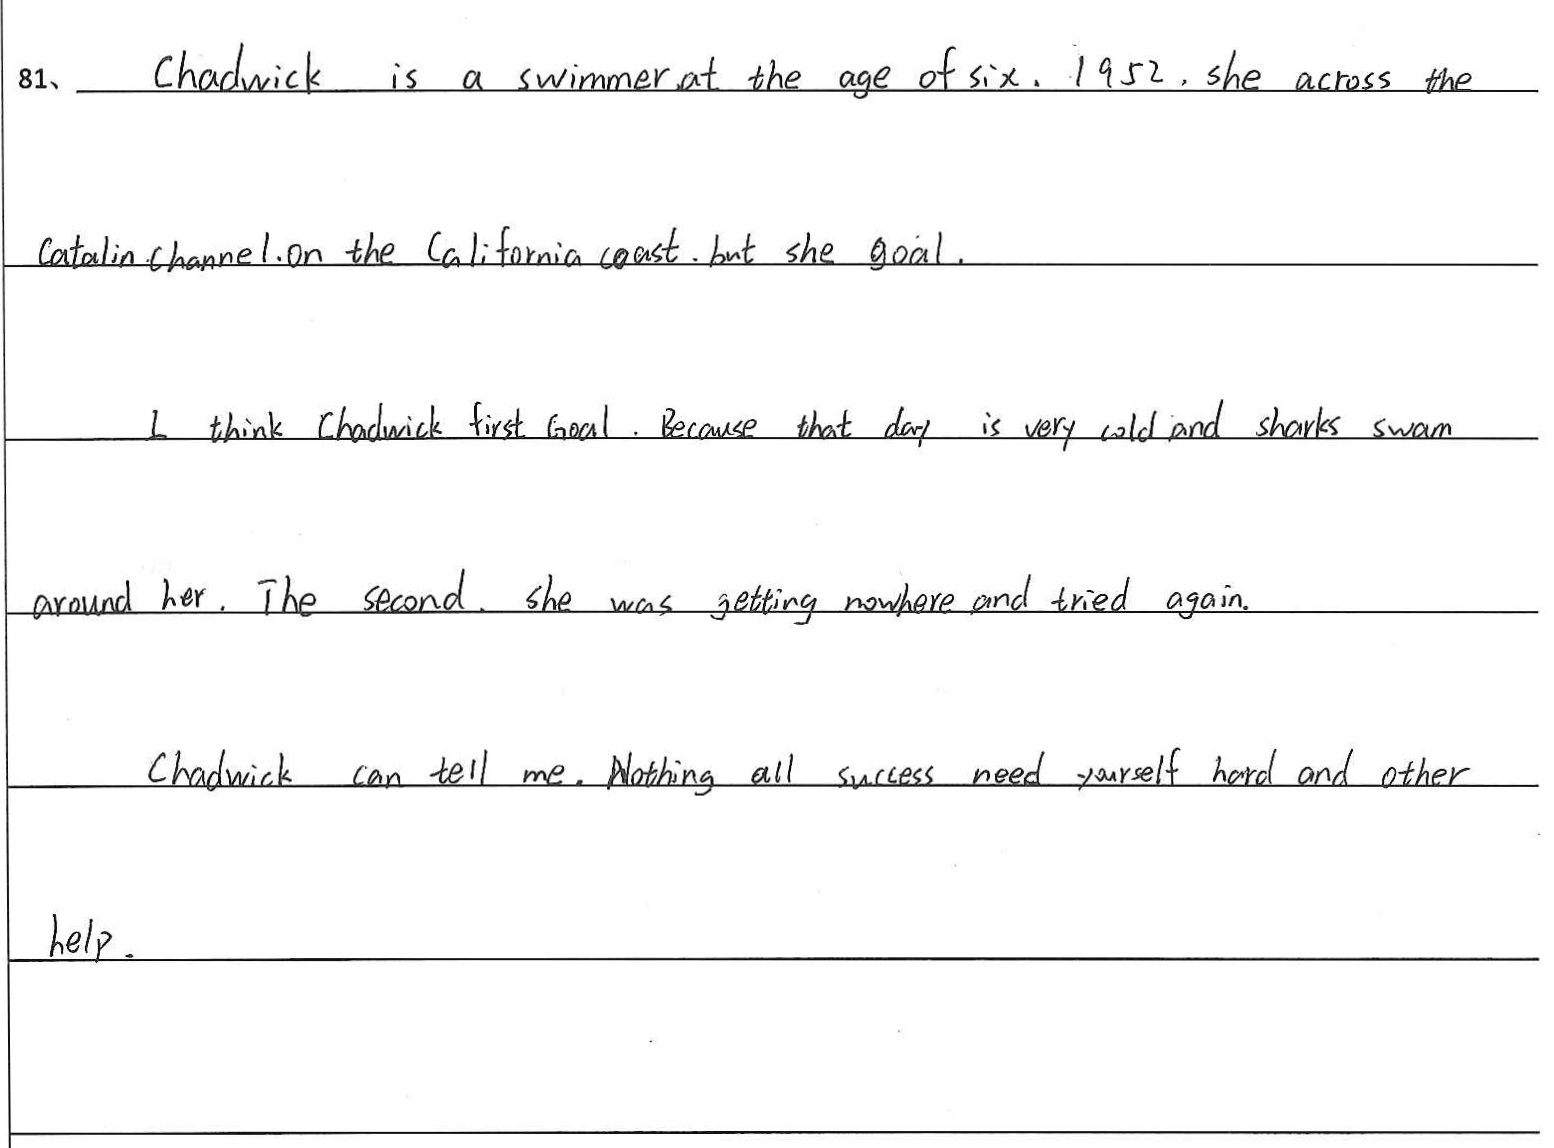 81、 Chadwick is a swimmer at the age of six. 1952, she across the
Catalin channel. on the California coast. but she goal.
I think Chadwick first Goal. Because that day is very cold and sharks swam
around her. The second. she was getting nowhere and tried again.
Chadwick can tell me. Nothing all success need yourself hard and other
help.